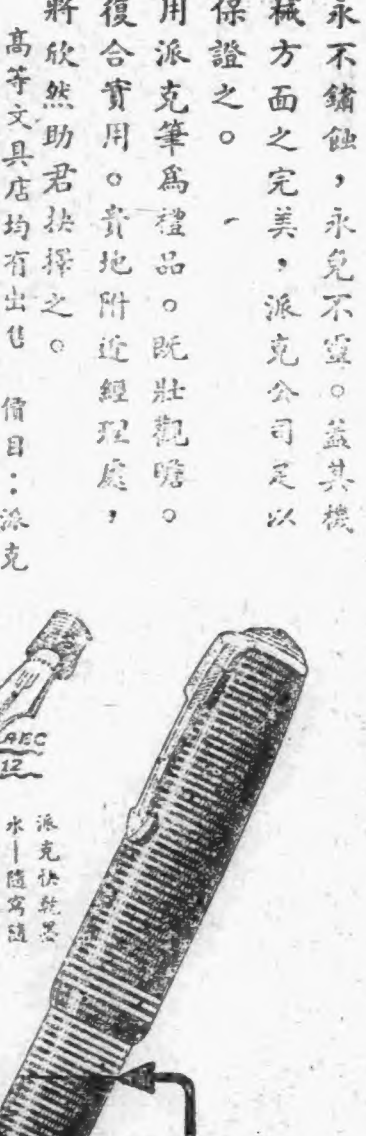 永不鏽蝕，永免不靈。蓋其機
械方面之完美，派克公司足以
保證之。
用派克筆爲禮品。既壯觀瞻。
復合實用。貴地附近經理處，
將欣然助君抉擇之。
高等文具店均有出售　價目：派克
派克快乾墨
水—隨寫隨
AEC
12